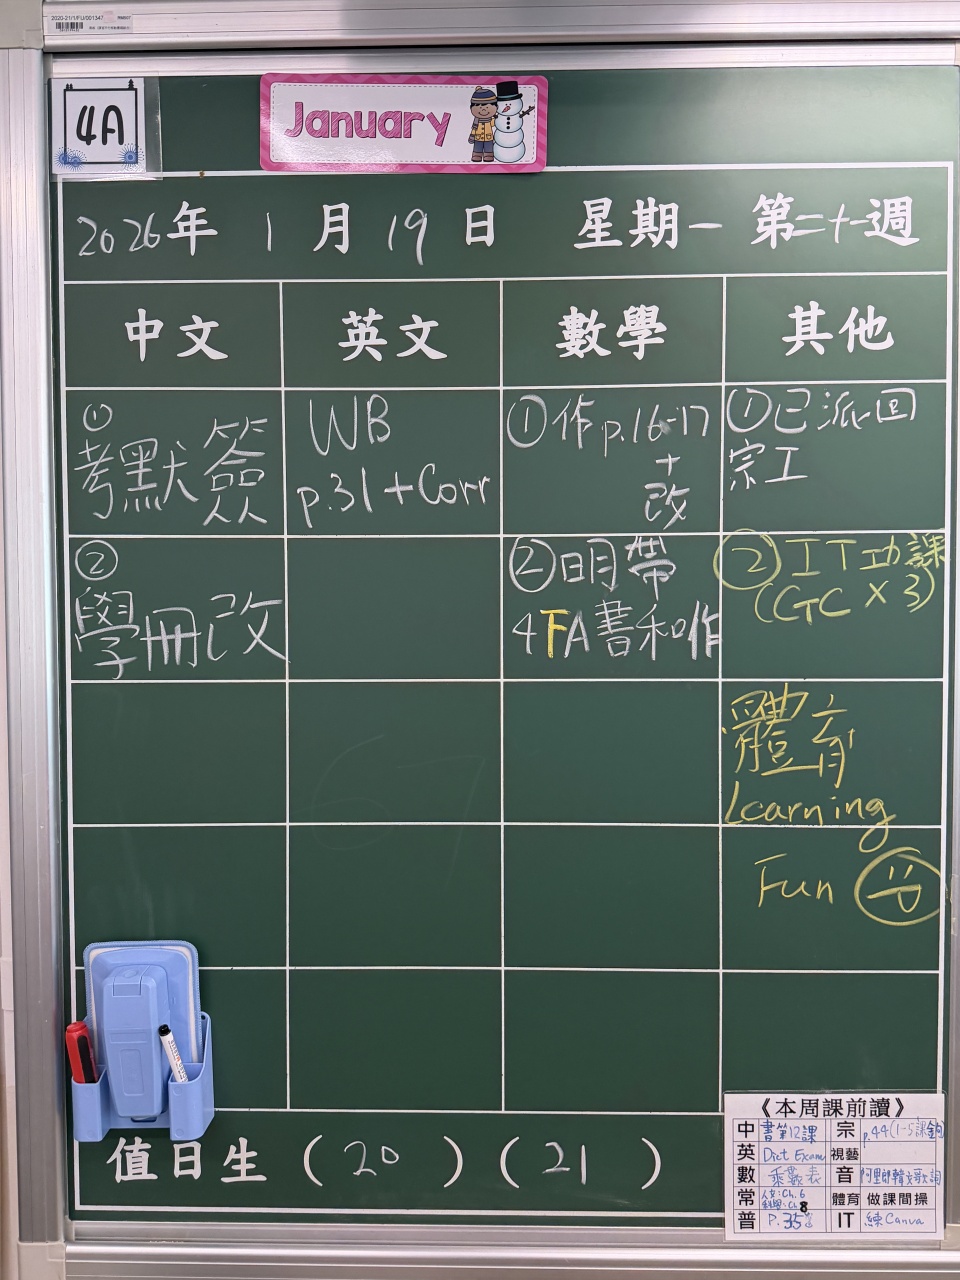 2020-21/1/FU/001347
4A
January
2026年 1月 19日 星期一 第二十一週
中文 英文 數學 其他
①
考默簽
WB
p.31+Corr
①作p.16-17
+
改
①已派回
宗工
②
學冊改
②明帶
4FA書和作
②IT功課
(GTC X 3)
體育
Learning
Fun
值日生 (20) (21)
《本周課前讀》
中 書第12課 宗 p.44(1-5課金句)
英 Dict Exam 視藝
數 乘數表 音 阿里郎韓文歌詞
常 人文:Ch.6
科學:Ch.8 體育 做課間操
普 P.35 IT 練Canva